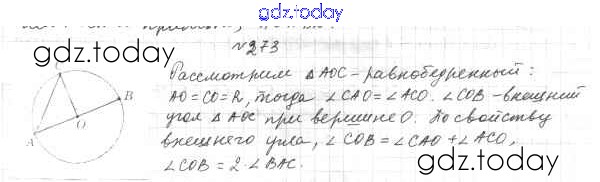 gdz.today
№273
gdz.today
Рассмотрим △AOC - равнобедренный:
AO = CO = R, тогда ∠CAO = ∠ACO. ∠COB - внешний
угол △AOC при вершине O. По свойству
внешнего угла, ∠COB = ∠CAO + ∠ACO,
∠COB = 2·∠BAC.
C
B
O
A
gdz.today
gdz.today